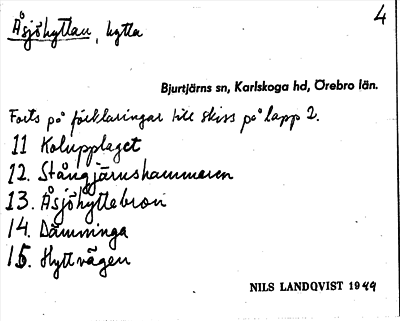 4
Åsjöhyttan, hytta
Bjurtjärns sn, Karlskoga hd, Örebro län.
Forts på förklaringar till skiss på lapp 2.
11 Kolupplaget
12. Stångjärnshammaren
13. Åsjöhyttebron
14. Dämninga
15. Hyttvägen
NILS LANDQVIST 1949